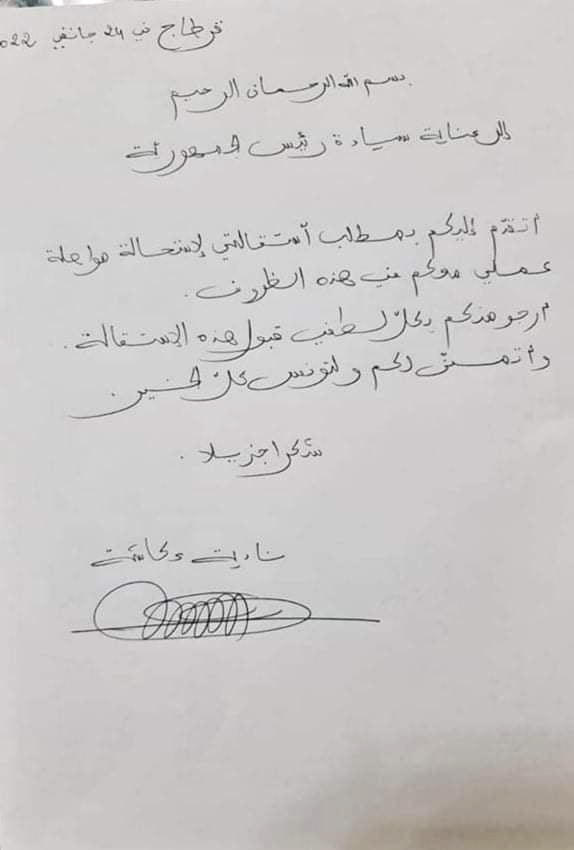 قرطاج في 24 جانفي 2022
بسم الله الرحمان الرحيم
إلى عناية سيادة رئيس الجمهورية
أتقدّم إليكم بمطلب أستقالتي لإستحالة مواصلة
عملي معكم في هذه الظروف.
أرجو منكم بكلّ لطف قبول هذه الإستقالة.
وأتمنّى لكم ولتونس كلّ الخير
شكرا جزيلا.
نادية عكاشة